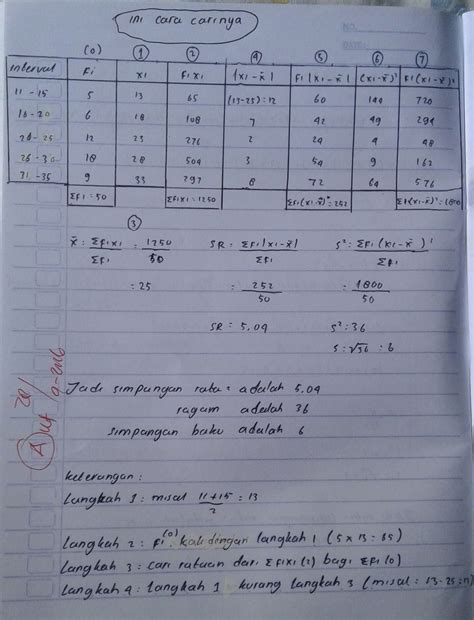 ini cara carinya
NO.
DATE:
(0) ① ② ④ ⑤ ⑥ ⑦
interval Fi xi Fixi |xi - x̄| fi|xi - x̄| (xi - x̄)² Fi(xi - x̄)²
11 - 15 5 13 65 (13-25):12 60 144 720
16 - 20 6 18 108 7 42 49 294
24 - 25 12 23 276 2 24 4 48
26 - 30 18 28 504 3 54 9 162
31 - 35 9 33 297 8 72 64 576
Σfi = 50 Σfixi = 1250 Σfi(xi-x̄)²=252 Σfi(xi-x̄)²=1800
③
x̄ = Σfixi / Σfi = 1250 / 50 SR = Σfi|xi - x̄| / Σfi s² = Σfi(xi - x̄)² / Σfi
= 25 = 252 / 50 = 1800 / 50
SR = 5.04 s² = 36
s = √36 = 6
Jadi simpangan rata² adalah 5.04
ragam adalah 36
simpangan baku adalah 6
keterangan :
Langkah 1 : misal 11+15 / 2 = 13
Langkah 2 : Fi (0) kali dengan langkah 1 (5 x 13 = 65)
Langkah 3 : cari rataan dari Σfixi (2) bagi Σfi (0)
Langkah 4 : langkah 1 kurang langkah 3 (misal = 13-25=12)